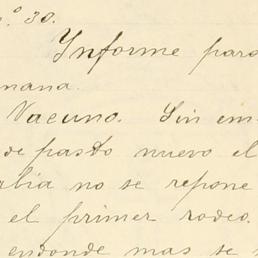 nº 30.
Informe para
mana.
Vacuno. Sin em
de pasto nuevo el
abia no se repone
el primer rodeo.
endonde mas se